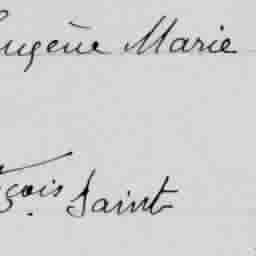 Eugène Marie
çois Saint